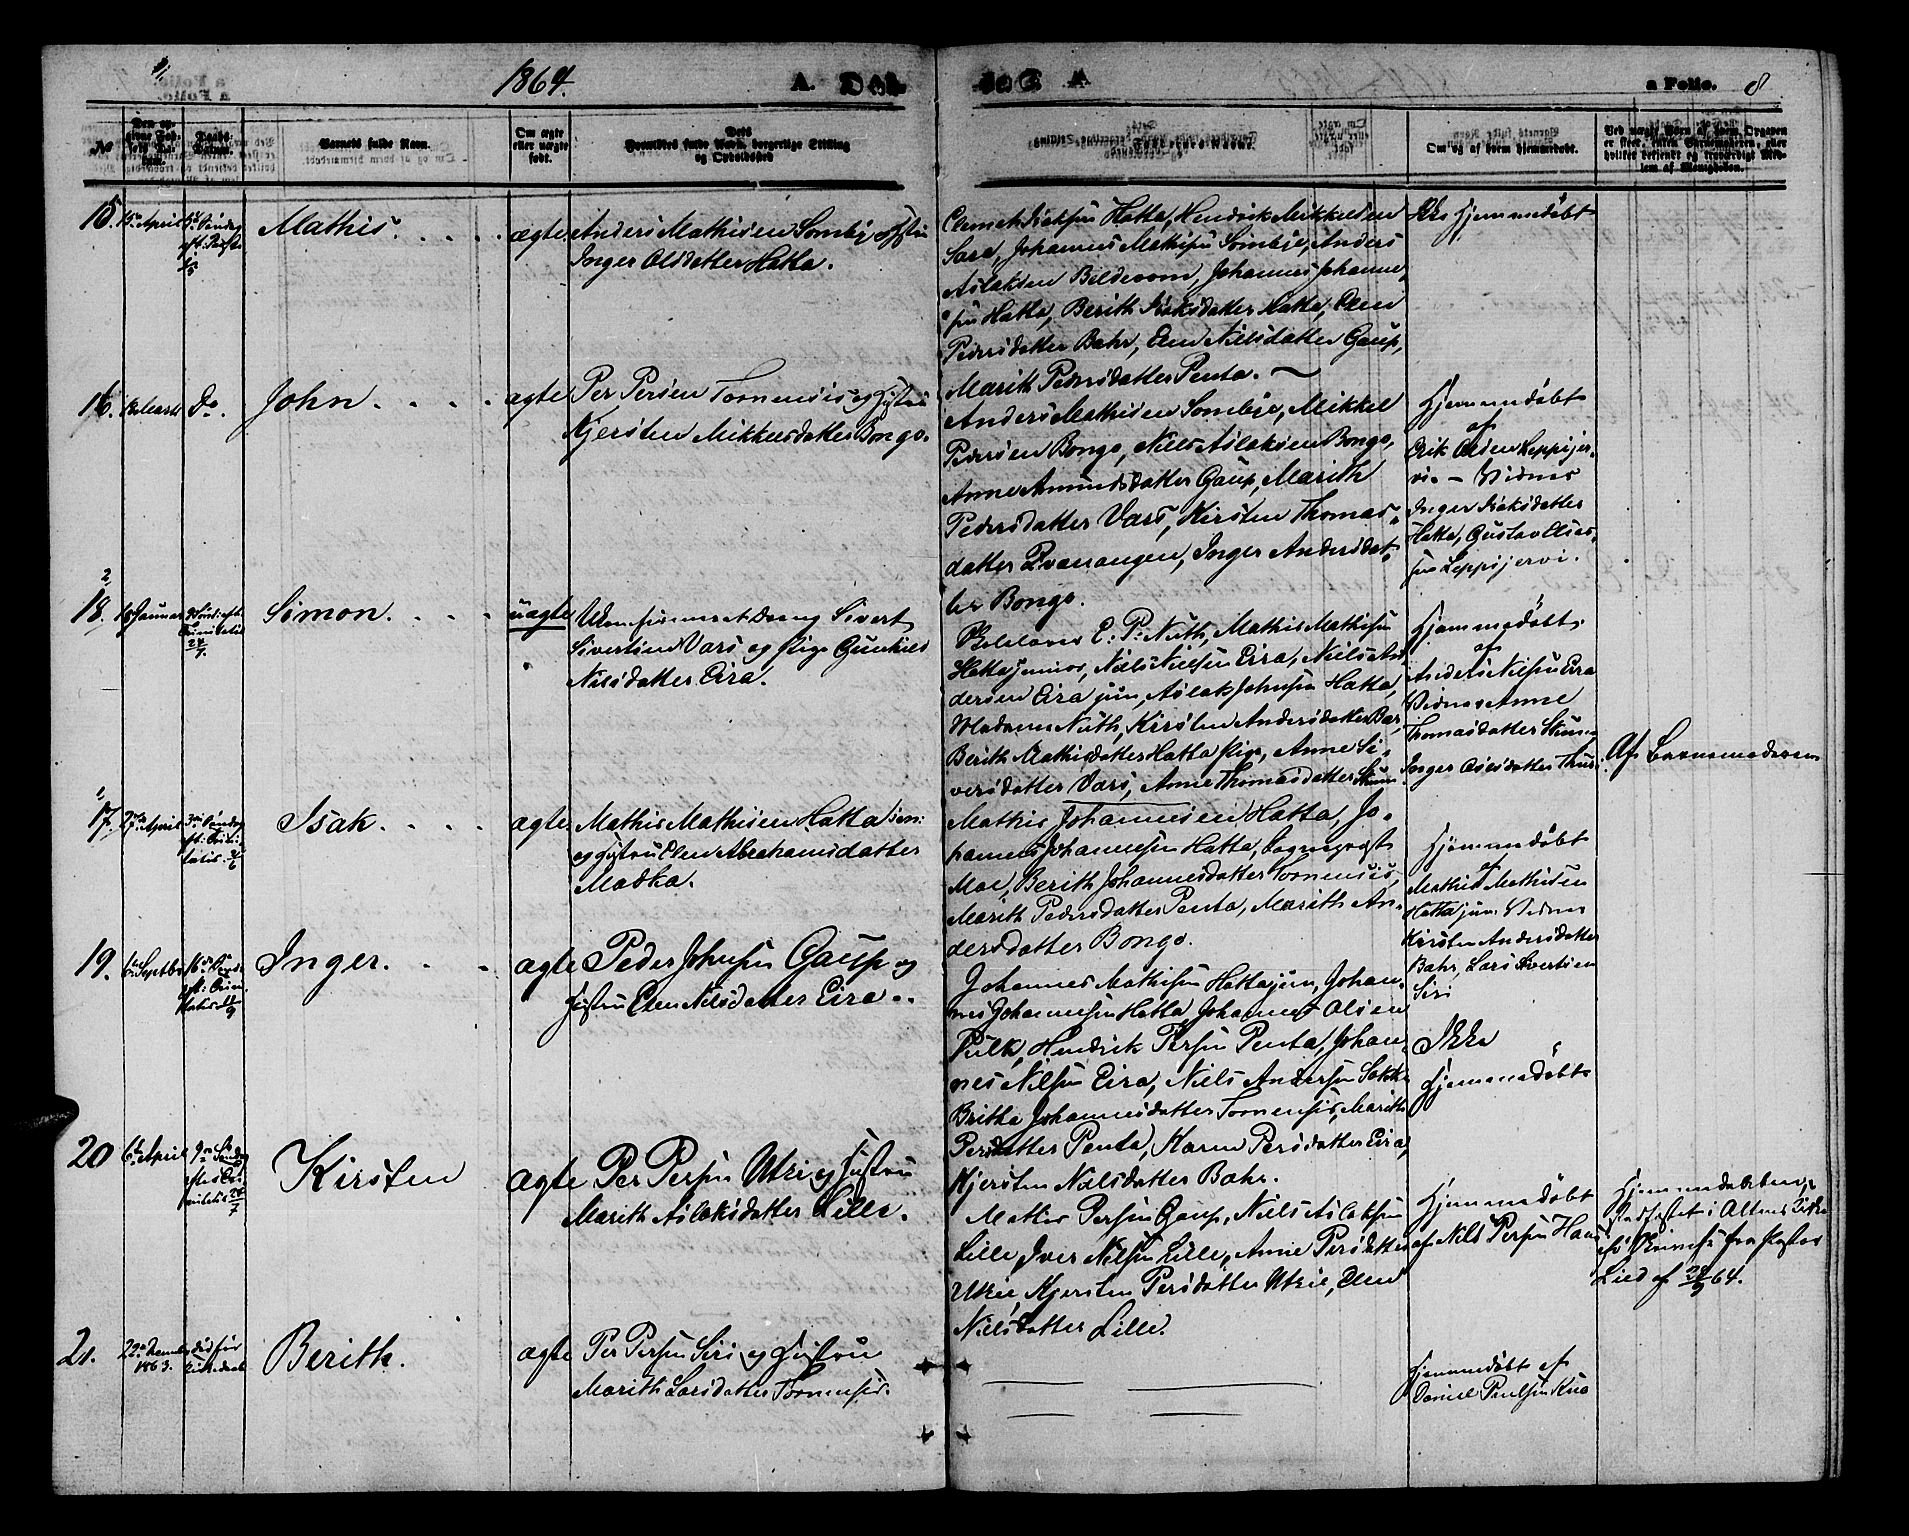 1864.
A. Døbte.
a Folio. 8
No.
Den opgivne Fødsels Datum.
Daabs-Datum.
Barnets fulde Navn.
Om ægte eller uægte født.
Forældres fulde Navn, borgerlige Stilling og Opholdssted
Faddernes Navne.
Om og af hvem hjemmedøbt.
15.
April
Mathis
ægte
Anders Mathisen Somby og Hustru
Inger Olsdatter Hatta.
Hatta, Hendrik Mikkelsen
Sara, Johannes Mathisen Sombye, Anders
Aslaksen Bildevom, Johannes Johanne-
sen Hatta, Berith Isaksdatter Hatta, Elen
Pedersdatter Bahr, Elen Nielsdatter Gaup,
Marith Pedersdatter Penta.
Ikke Hjemmedøbt
16.
Marts
Do.
John
ægte
Per Persen Tornensis og Hustru
Kjersten Mikkelsdatter Bongo.
Anders Mathisen Sombye, Mikkel
Pedersen Bongo, Niels Aslaksen Bongo,
Anne Amundsdatter Gaup, Marith
Pedersdatter Vars, Kirsten Thomas-
datter Qvænangen, Inger Andersdat-
ter Bongo.
Hjemmedøbt
af
Erik Olsen Leppijer-
vi. Vidner
Inger Isaksdatter
Hatta, Gustav Elias-
sen Leppijervi.
2
18.
Januar
Simon
uægte
Ungkarl Sivert
Sivertsen Vars og Pige Gunhild
Nilsdatter Eira.
E. P. Nuth, Mathis Mathisen
Hatta junior, Niels Nielsen Eira, Niels An-
dersen Eira jun, Aslak Johnsen Hatta,
Madame Nuth, Kirsten Andersdatter Bær,
Berith Mathisdatter Hatta Pige, Anne Si-
versdatter Vars, Anne Thomasdatter Skum
Hjemmedøbt
af
Anders Nilsen Eira
Vidner Anne
Thomasdatter Skum
Inger Olsdatter Thuri
Af Barnemoderen
1
17.
27de April
Isak
ægte
Mathis Mathisen Hatta sen:
og Hustru Elen Abrahamsdatter
Madka.
Mathis Johannesen Hatta, Jo-
hannes Johannesen Hatta, Sognepræst
Moe, Berith Johannesdatter Tornensis,
Marith Pedersdatter Penta, Marith An-
dersdatter Bongo.
Hjemmedøbt
af
Mathis Mathisen
Hatta jun: Vidner
Kirsten Andersdatter
Bahr, Lars Sivertsen
Siri
19.
Septbr
Inger
ægte
Peder Johnsen Gaup og
Hustru Elen Nilsdatter Eira.
Johannes Mathisen Hatta jun, Johan-
nes Johannesen Hatta, Johannes Olsen
Pulk, Hendrik Persen Penta, Johan-
nes Nilsen Eira, Niels Andersen Sokki
Britha Johannesdatter Tornensis, Marith
Persdatter Penta, Karen Persdatter Eira,
Kjersten Nielsdatter Bahr.
Ikke
Hjemmedøbt
20
6te April
Kirsten
ægte
Per Persen Utzi og Hustru
Marith Aslaksdatter Lille.
Mathis Persen Gaup, Niels Aslaksen
Lille, Iver Nilsen Lille, Anne Persdatter
Utzie Kjersten Persdatter Utzie, Elen
Nielsdatter Lille.
Hjemmedøbt
af Nils Persen
Hjemmedaaben
stadfæstet i Altens Kirke
fra Pastor
Lied af 64.
21.
1863.
død før
Berith.
ægte
Per Persen Siri og Hustru
Marith Larsdatter Tornensis.
Hjemmedøbt af
Daniel Poulsen